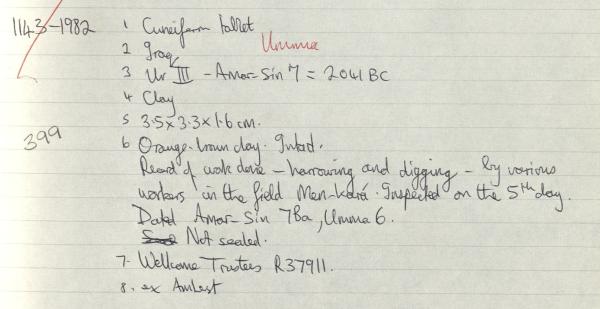 1143-1982 1 Cuneiform tablet
2 Iraq Umma
3 Ur III - Amar-Sin 7 = 2041 BC
4 Clay
5 3.5 x 3.3 x 1.6 cm.
399 6 Orange-brown clay. Intact.
Record of work done - harrowing and digging - by various
workers in the field Men-kará. Inspected on the 5th day.
Dated Amar-Sin 7Ba, Umma 6.
Not sealed.
7. Wellcome Trustees R37911.
8. ex